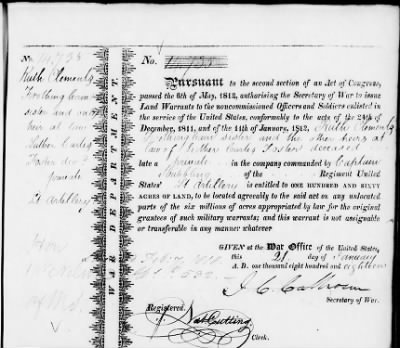 No.
Ruth Clements
sister and
heir at law
Luther
private
Lt Artillery
WAR DEPARTMENT.
No.
Pursuant to the second section of an Act of Congress,
passed the 6th of May, 1812, authorising the Secretary of War to issue
Land Warrants to the noncommissioned Officers and Soldiers enlisted in
the service of the United States, conformably to the acts of the 24th of
December, 1811, and of the 11th of January, 1812, Ruth Clements
sister and the other heirs at
law of Luther Foster deceased
late a private in the company commanded by Captain
of the Regiment United
States' Lt Artillery is entitled to ONE HUNDRED AND SIXTY
ACRES OF LAND, to be located agreeably to the said act on any unlocated
parts of the six millions of acres appropriated by law for the original
grantees of such military warrants; and this warrant is not assignable
or transferable in any manner whatever.
GIVEN at the War Office of the United States,
this 21 day of January
A. D. one thousand eight hundred and eighteen
J. C. Calhoun
Secretary of War.
Registered,
Nat Cutting
Clerk.